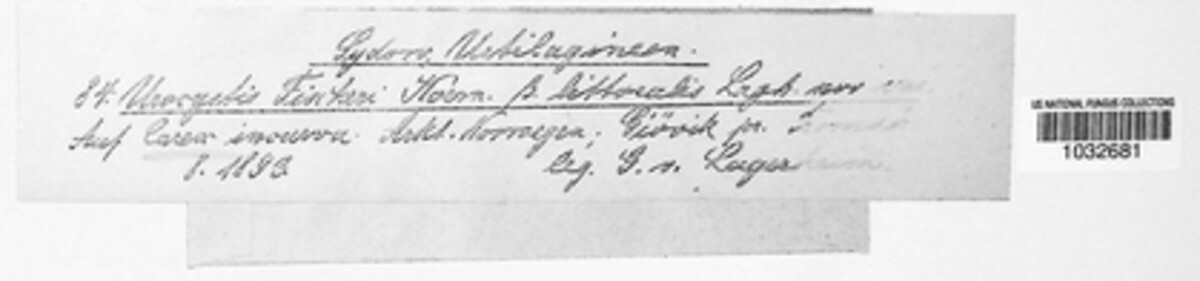 Sydow, Ustilagineen.
84. Urocystis Fischeri Körn. β littoralis Lagh. nov var.
Auf Carex incurva. Arkt. Norwegen; Giövik pr. Tromsö
8. 1893. leg. G. v. Lagerheim.
US NATIONAL FUNGUS COLLECTIONS
1032681